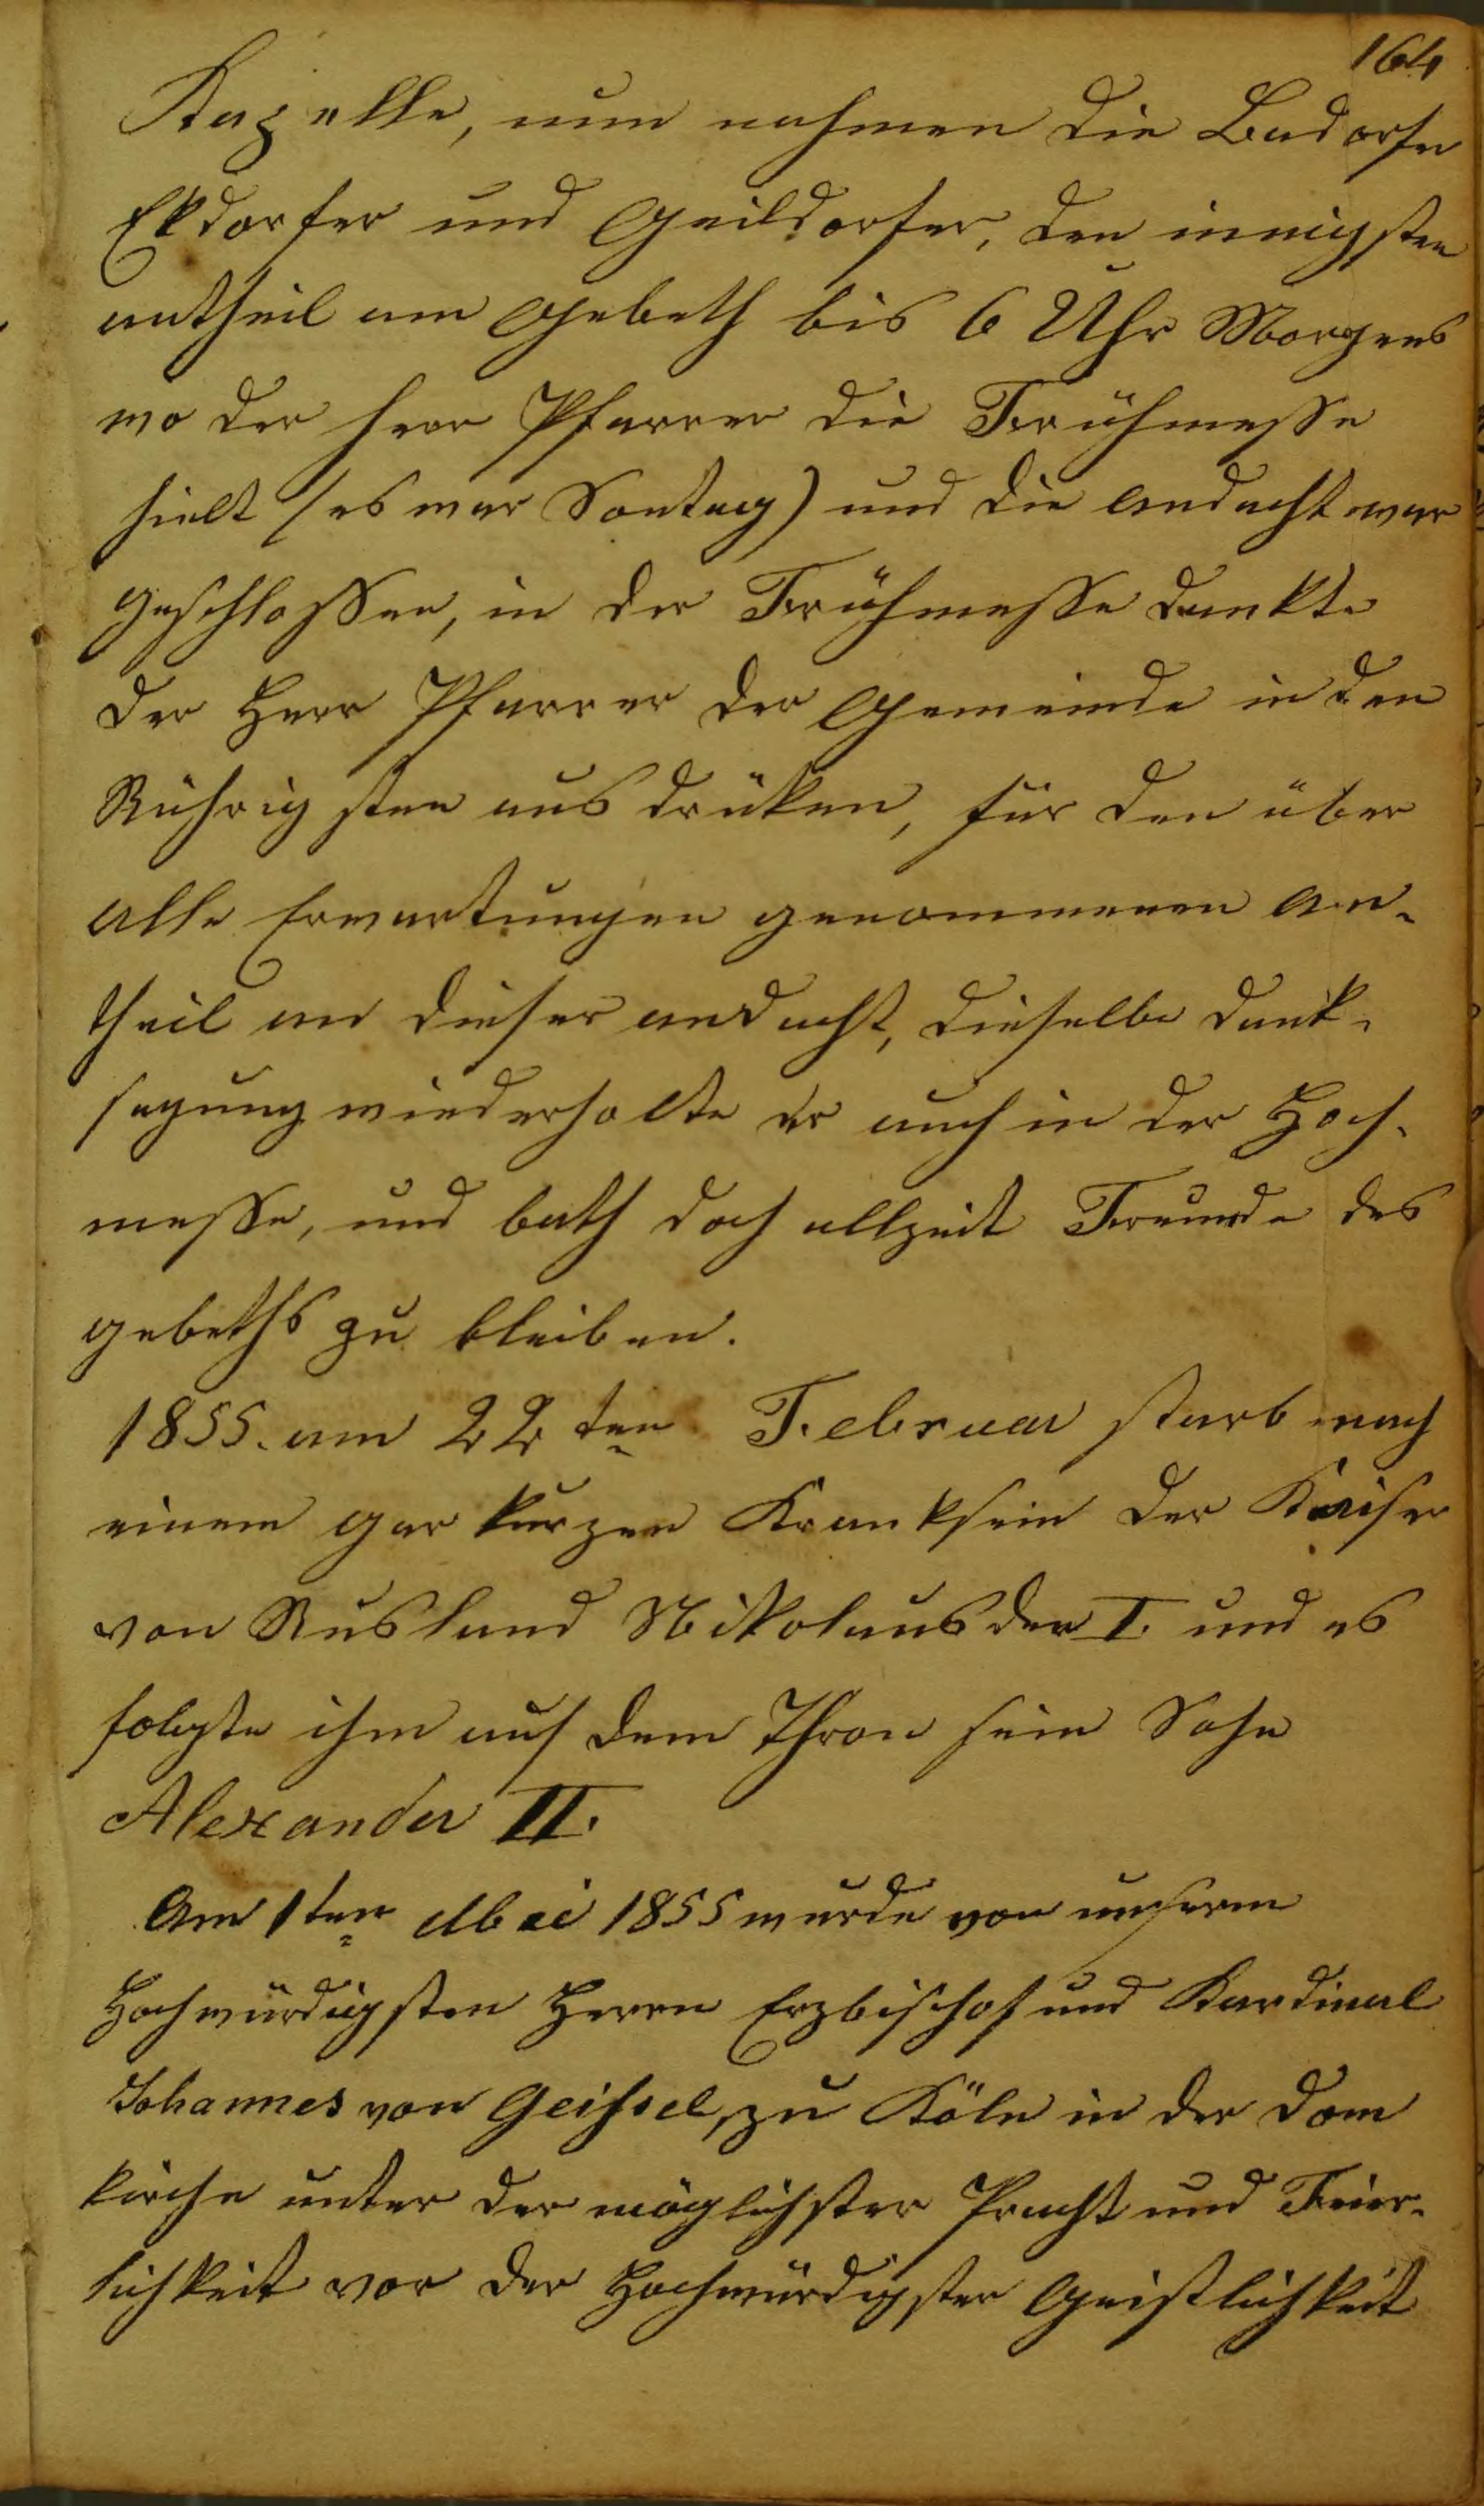 164
Kapelle, nun nahmen die Badorfer
Ekdorfer und Geildorfer, den innigsten
antheil am Gebeth bis 6 Uhr Morgens
wo der herr Pfarrer die Frühmesse
hielt (es war Sontag) und die andacht war
geschlossen, in der Frühmesse dankte
der Herr Pfarrer der Gemeinde in den
Rührigsten ausdrüken, für den über
alle Erwartungen genommenen An-
theil an dieser andacht, dieselbe dank-
sagung wiederholte er auch in der Hoch-
messe, und bath doch allzeit Freunde des
gebeths zu bleiben.
1855. am 22ten Februar starb nach
einem gar kurzen Kranksein der Kaiser
von Rusland Nikolaus der I. und es
folgte ihm auf dem Thron sein Sohn
Alexander II.
Am 1ten Mai 1855 wurde von unserm
Hochwürdigsten Herrn Erzbischof und Kardinal
Johannes von Geissel, zu Köln in der Dom
kirche unter der möglichster Pracht und Feier-
lichkeit vor der Hochwürdigster Geistlichkeit